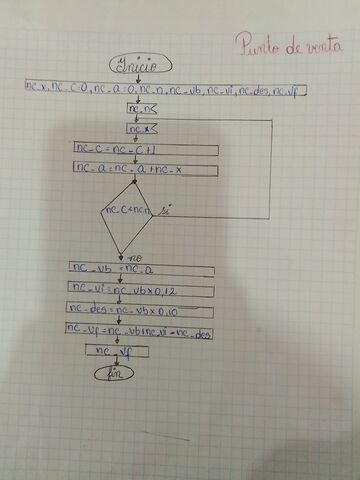 Punto de venta
Inicio
nc_x, nc_c=0, nc_a=0, nc_n, nc_vb, nc_vi, nc_des, nc_vf
nc_n
nc_x
nc_c=nc_c+1
nc_a=nc_a+nc_x
nc_c<nc_n
si
no
nc_vb=nc_a
nc_vi=nc_vb×0,12
nc_des=nc_vb×0,10
nc_vf=nc_vb+nc_vi-nc_des
nc_vf
fin